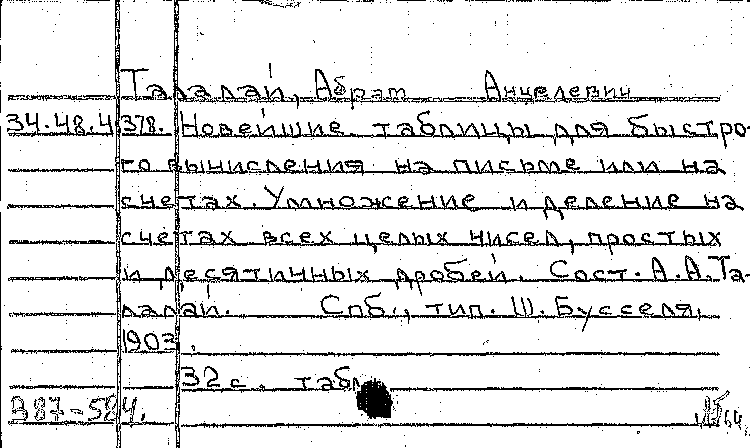 Талалай, Абрам Анцелевич
34.48.4 378. Новейшие таблицы для быстро-
го вычисления на письме или на
счетах. Умножение и деление на
счетах всех целых чисел, простых
и десятичных дробей. Сост. А.А.Та-
лалай. Спб., тип. Ш. Бусселя,
1903.
32 с. табл
387-584.